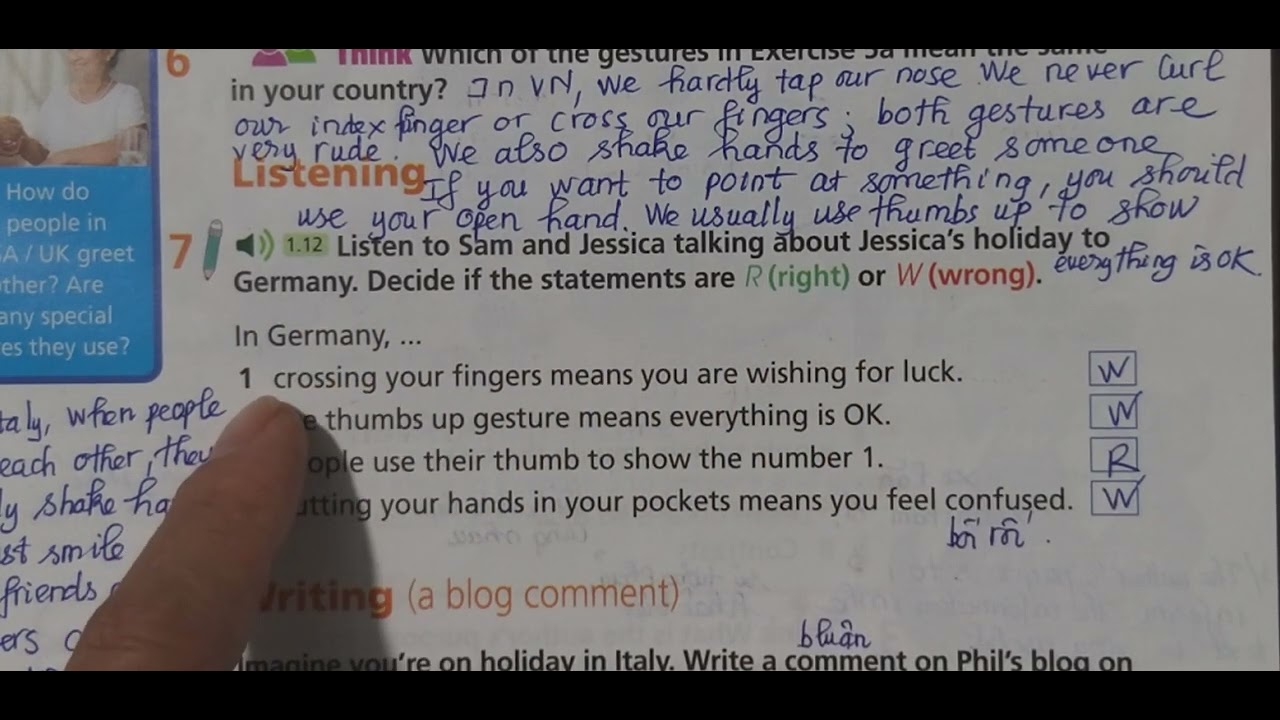 6 Think Which of the gestures in Exercise 5a mean the same
in your country? In VN, we hardly tap our nose We never curl
our index finger or cross our fingers; both gestures are
very rude. We also shake hands to greet someone
Listening If you want to point at something, you should
use your open hand. We usually use thumbs up to show
everything is OK.
7 1.12 Listen to Sam and Jessica talking about Jessica's holiday to
Germany. Decide if the statements are R (right) or W (wrong).
In Germany, ...
1 crossing your fingers means you are wishing for luck. W
thumbs up gesture means everything is OK. W
ople use their thumb to show the number 1. R
utting your hands in your pockets means you feel confused. W
bối rối.
Writing (a blog comment)
bluận
Imagine you're on holiday in Italy. Write a comment on Phil's blog on
How do
people in
SA / UK greet
ther? Are
any special
es they use?
taly, when people
each other, they
ly shake ha
st smile
friends
ers